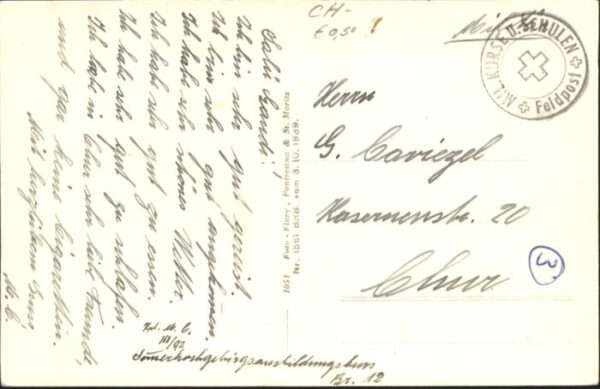 Salü Grandi!
Ich bin sehr gut gereist.
Ich bin sehr gut angekommen.
Ich habe sehr schönes Wetter.
Ich habe sehr gut zu essen.
Ich habe sehr gut zu schlafen.
Ich habe in Chur sehr liebe Freunde,
und gar keine Cigaretten.
Mit herzlichem Gruss
M. C.
III/93
Br. 12
1651 Foto-Flury, Pontresina & St. Moritz
Nr. 1651 BRB vom 3.10.1939.
CH-
€0,50
MIL. KURSE U. SCHULEN
Feldpost
Herrn
G. Caviezel
Kasernenstr. 20
Chur
3